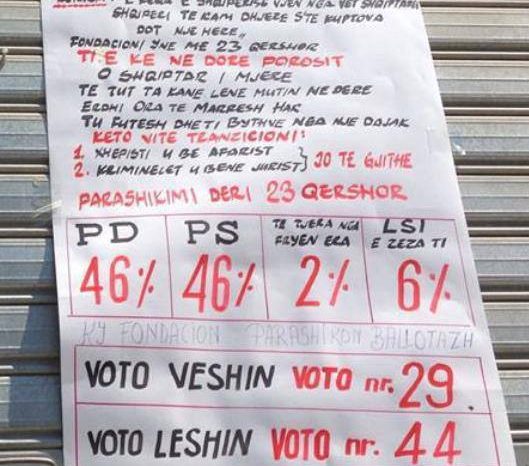 E KEQ E SHQIPERISE VJEN NGA VET SHQIPTARET
SHQIPERI TE KAM DHJERE S'TE KUPTOVA
DOT NJE HERE,,
FONDACIONI YNE ME 23 QERSHOR
TI E KE NE DORE POROSIT
O SHQIPTAR I MJERE
TE TUT TA KANE LENE MUTIN NE DERE
ERDHI ORA TE MARRESH HAK
TU FUTESH DHETI BYTHVE NGA NJE DAJAK
KETO VITE TRANZICIONI:
1. XHEPISTI U BE AFARIST
2. KRIMINELET U BENE JURIST} JO TE GJITHE
PARASHIKIMI DERI 23 QERSHOR
PD PS TE TJERA NGA FRYEN ERA LSI E ZEZA TI
46% 46% 2% 6%
KY FONDACION PARASHIKON BALLOTAZH
VOTO VESHIN VOTO nr. 29.
VOTO LESHIN VOTO nr. 44